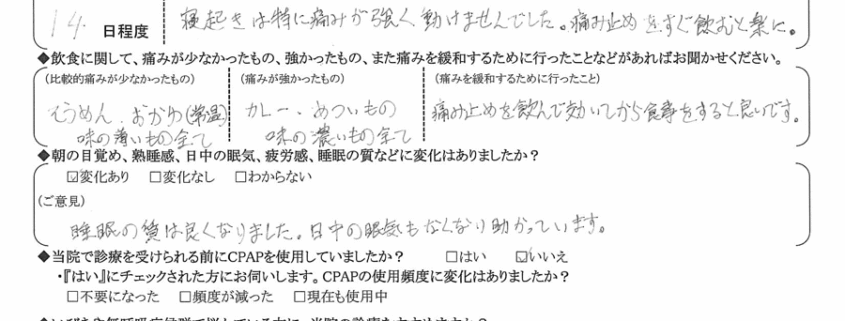 14 日程度 寝起きは特に痛みが強く動けませんでした。痛み止めをすぐ飲むと楽に。
◆飲食に関して、痛みが少なかったもの、強かったもの、また痛みを緩和するために行ったことなどがあればお聞かせください。
(比較的痛みが少なかったもの) (痛みが強かったもの) (痛みを緩和するために行ったこと)
そうめん.おかゆ(常温) カレー.あついもの 痛み止めを飲んで効いてから食事をすると良いです。
味の薄いもの全て 味の濃いもの全て
◆朝の目覚め、熟睡感、日中の眠気、疲労感、睡眠の質などに変化はありましたか？
☑変化あり □変化なし □わからない
(ご意見)
睡眠の質は良くなりました。日中の眠気もなくなり助かっています。
◆当院で診療を受けられる前にCPAPを使用していましたか？ □はい ☑いいえ
・『はい』にチェックされた方にお伺いします。CPAPの使用頻度に変化はありましたか？
□不要になった □頻度が減った □現在も使用中